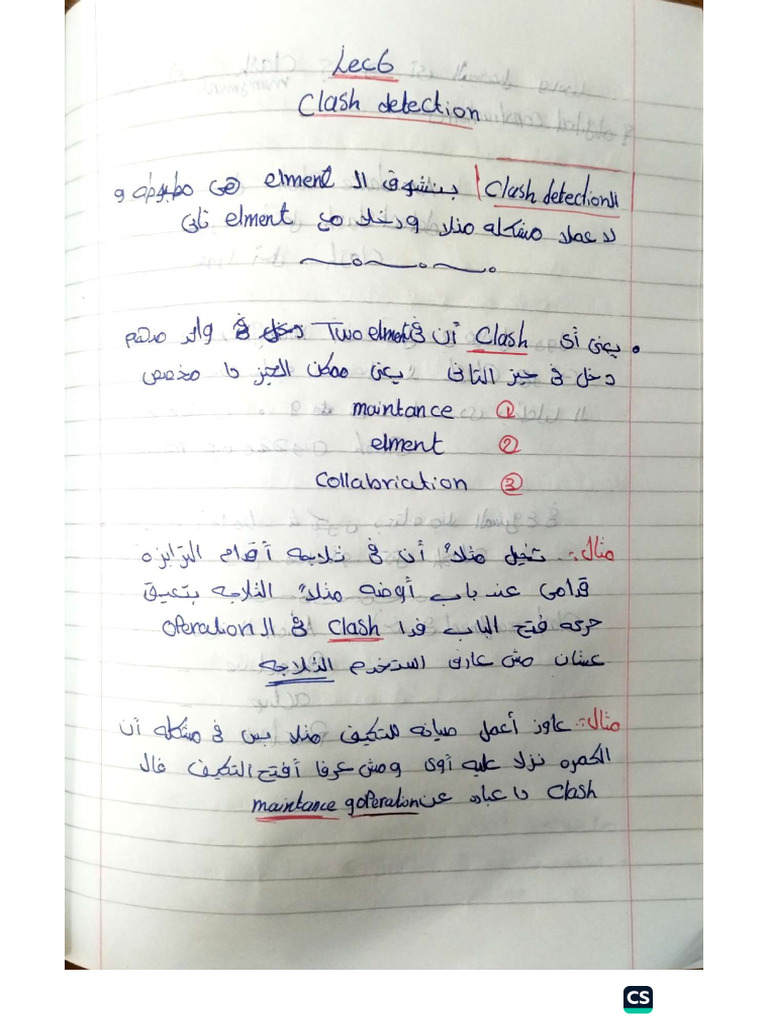 Lec6
Clash detection
ال Clash detection بنشوف ال elment هي مظبوطه و
لا عملا مشكله مثلا ودخلا مع elment تاني
يعني أي Clash أن في Two elment دخل في واحد منهم
دخل في حيز التاني يعني ممكن الحيز دا مخصص
① maintance
② elment
③ Collabriation
مثال: تخيل مثلاً أن في ثلاجه أقدام الترابزه
قدامي عند باب أوضه مثلاً الثلاجه بتعيق
حركه فتح الباب فدا Clash في ال operation
عشان مش عارف استخدم الثلاجه
مثال: عاوز أعمل صيانه للتكيف مثلا بس في مشكله أن
الكمره نزلا عليه أوي ومش عرفا أفتح التكيف فال
Clash دا عباره عن operation و maintance
CS